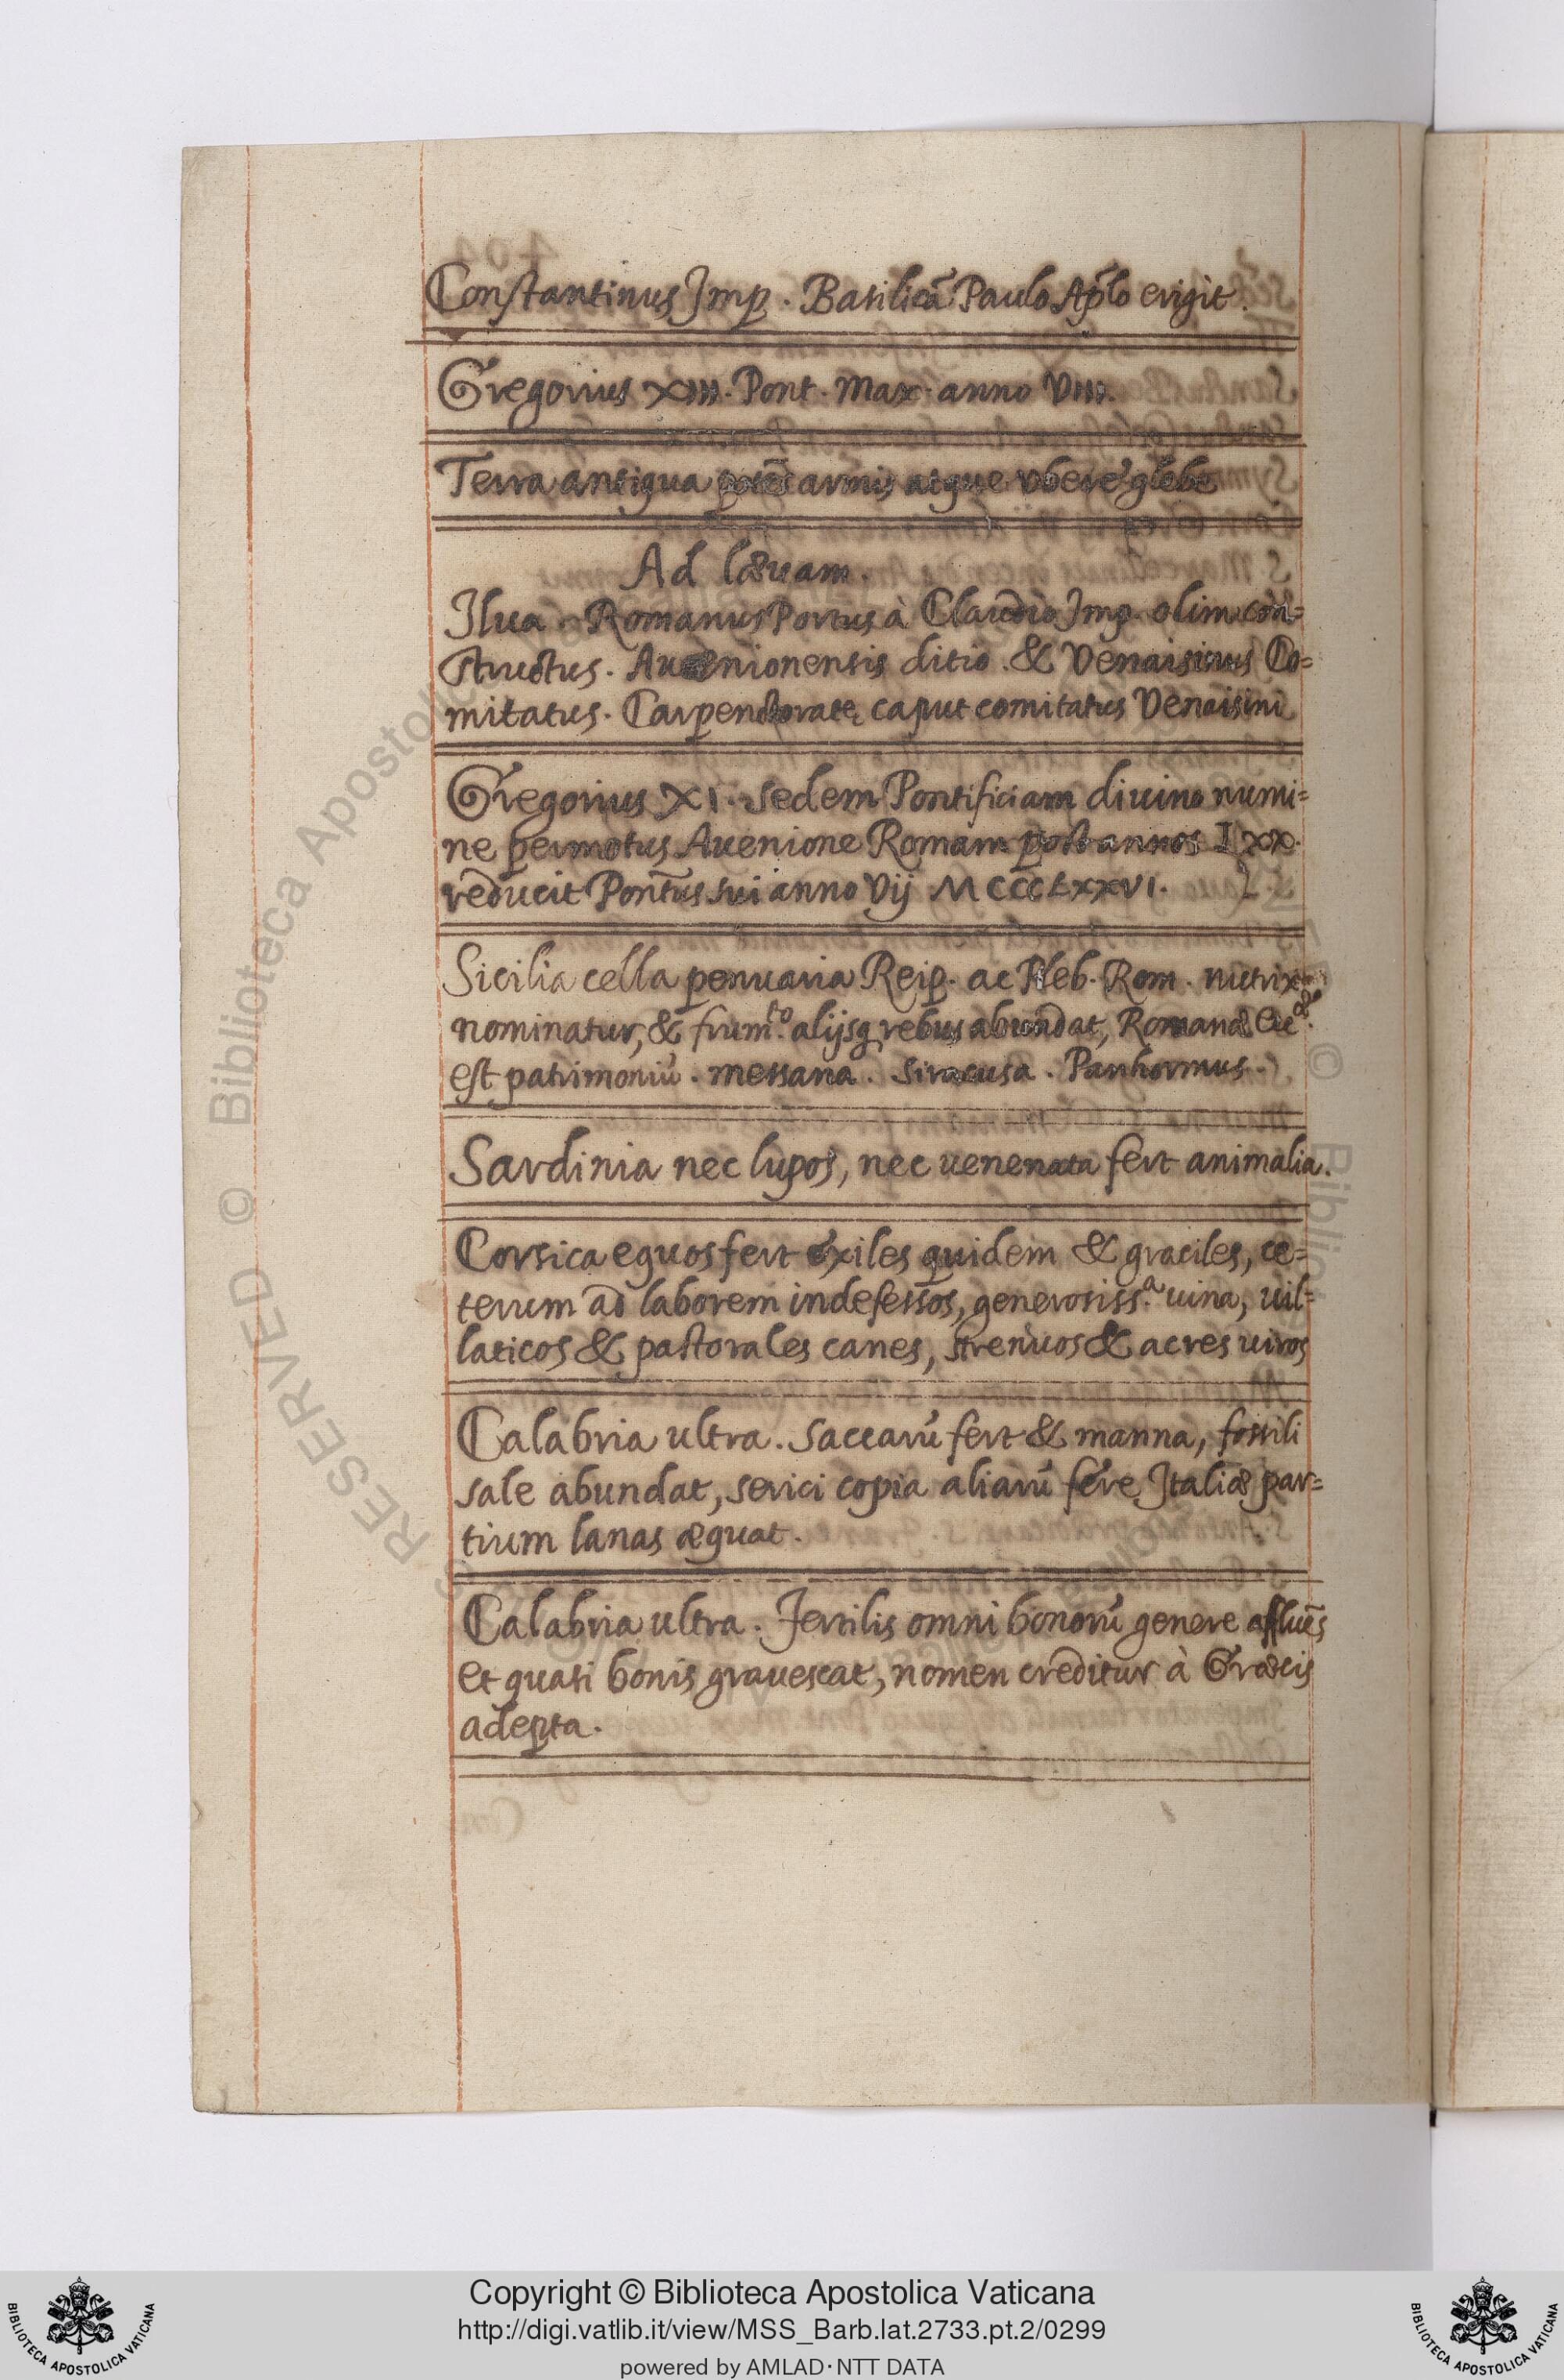 Constantinus Imp. Basilicā Paulo Ap̄lo erigit.
Gregorius XIII. Pont. Max. anno VIII.
Terra antiqua potēs armis atque vbere glebe
Ad læuam.
Ilua. Romanus Portus à Claudio Imp. olim con=
structus. Auenionensis ditio. & Venaisinus Co=
mitatus. Carpenctorate caput comitatus Venaisini
Gregorius XI. sedem Pontificiam diuino numi=
ne permotus Auenione Romam post annos Lxx.
reducit Pont̄us sui anno Vij MCCCLXXVI.
Sicilia cella penuaria Reip. ac Pleb. Rom. nutrix
nominatur, & frumto. alijsq rebus abundat, Romanæ Ecæ.
est patrimoniū. messana. Siracusa. Panhormus.
Sardinia nec lupos, nec uenenata fert animalia.
Corsica equos fert exiles quidem & graciles, ce=
terum ad laborem indefessos, generosissa. uina, uil=
laticos & pastorales canes, strenuos & acres uiros
Calabria ultra. Saccarū fert & manna, fossili
sale abundat, serici copia aliarū fere Italiæ par=
tium lanas æquat.
Calabria ultra. Fertilis omni bonorū genere affluēs
et quasi bonis grauescat, nomen creditur à Græcis
adepta.
Copyright © Biblioteca Apostolica Vaticana
http://digi.vatlib.it/view/MSS_Barb.lat.2733.pt.2/0299
powered by AMLAD·NTT DATA
BIBLIOTECA APOSTOLICA VATICANA
BIBLIOTECA APOSTOLICA VATICANA